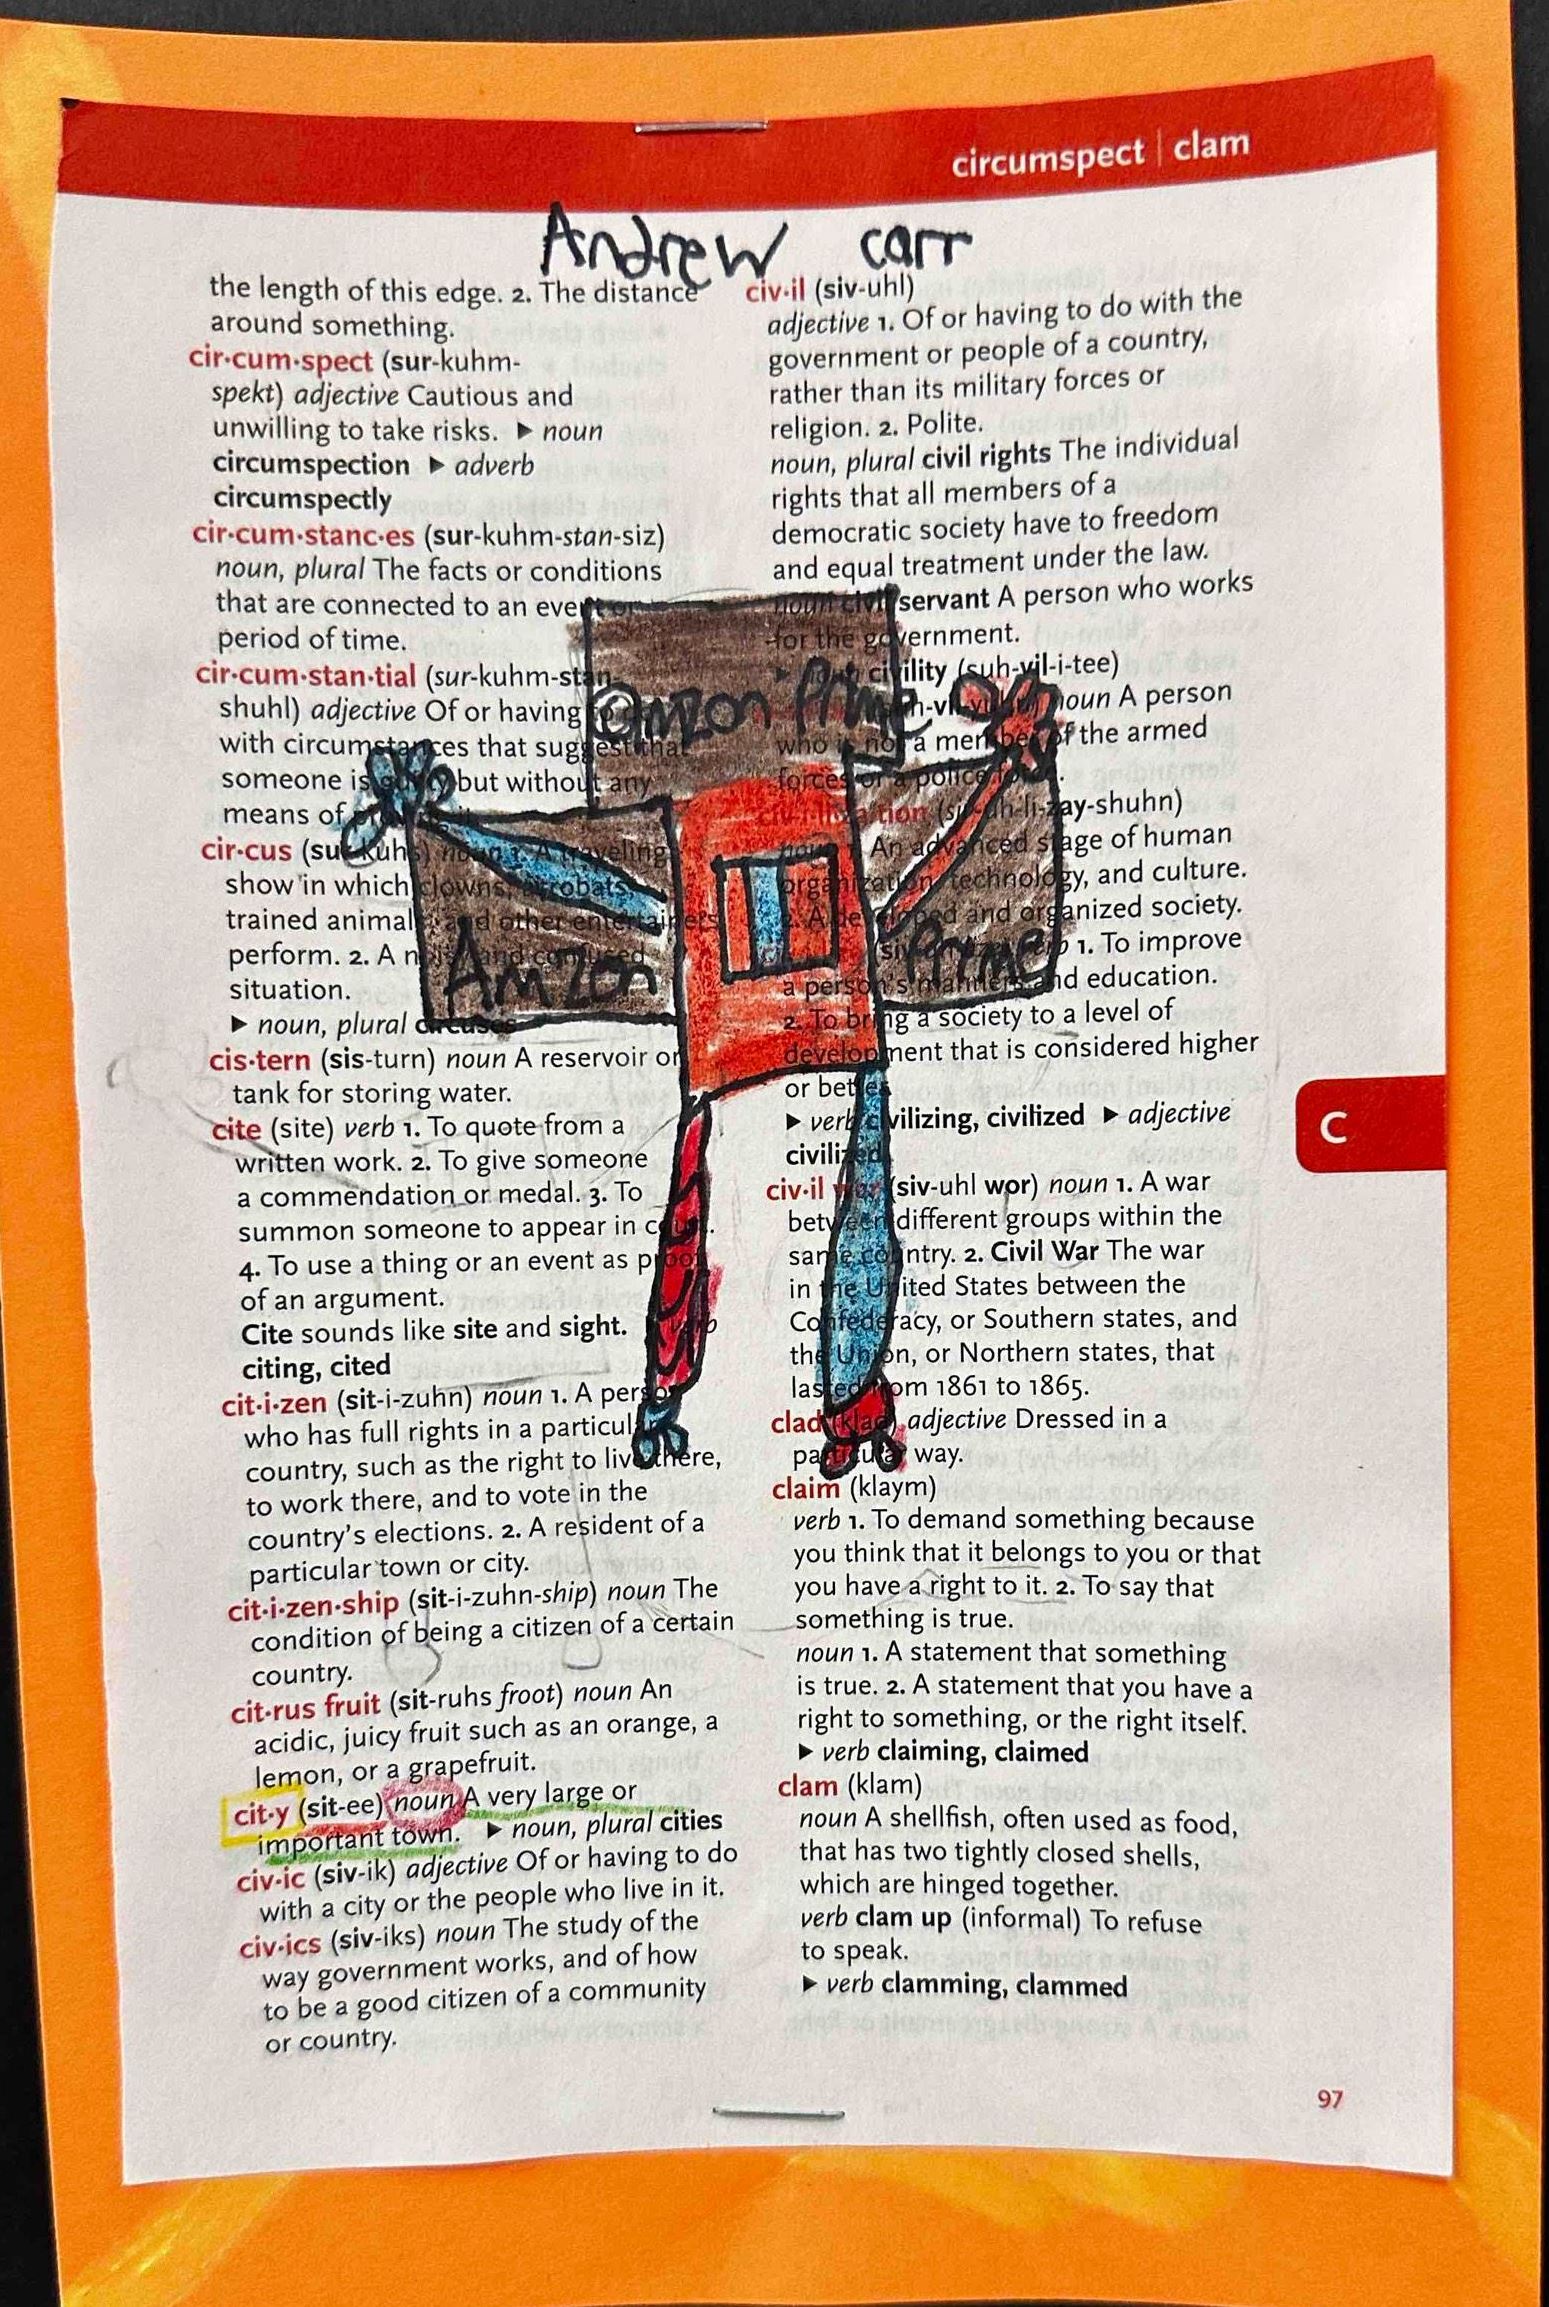 circumspect | clam
Andrew carr
the length of this edge. 2. The distance
around something.
cir·cum·spect (sur-kuhm-
spekt) adjective Cautious and
unwilling to take risks. ▶ noun
circumspection ▶ adverb
circumspectly
cir·cum·stanc·es (sur-kuhm-stan-siz)
noun, plural The facts or conditions
that are connected to an event or
period of time.
cir·cum·stan·tial (sur-kuhm-stan-
shuhl) adjective Of or having to do
with circumstances that suggest that
someone is guilty but without any
means of proving it.
cir·cus (sur-kuhs) noun 1. A traveling
show in which clowns, acrobats,
trained animals, and other entertainers
perform. 2. A noisy and confused
situation.
▶ noun, plural circuses
cis·tern (sis-turn) noun A reservoir or
tank for storing water.
cite (site) verb 1. To quote from a
written work. 2. To give someone
a commendation or medal. 3. To
summon someone to appear in court.
4. To use a thing or an event as proof
of an argument.
Cite sounds like site and sight. ▶ verb
citing, cited
cit·i·zen (sit-i-zuhn) noun 1. A person
who has full rights in a particular
country, such as the right to live there,
to work there, and to vote in the
country's elections. 2. A resident of a
particular town or city.
cit·i·zen·ship (sit-i-zuhn-ship) noun The
condition of being a citizen of a certain
country.
cit·rus fruit (sit-ruhs froot) noun An
acidic, juicy fruit such as an orange, a
lemon, or a grapefruit.
cit·y (sit-ee) noun A very large or
important town. ▶ noun, plural cities
civ·ic (siv-ik) adjective Of or having to do
with a city or the people who live in it.
civ·ics (siv-iks) noun The study of the
way government works, and of how
to be a good citizen of a community
or country.
civ·il (siv-uhl)
adjective 1. Of or having to do with the
government or people of a country,
rather than its military forces or
religion. 2. Polite.
noun, plural civil rights The individual
rights that all members of a
democratic society have to freedom
and equal treatment under the law.
noun civil servant A person who works
for the government.
▶ noun civility (suh-vil-i-tee)
noun A person
who is not a member of the armed
forces or a police force.
civ·i·li·za·tion (siv-uh-li-zay-shuhn)
noun 1. An advanced stage of human
organization, technology, and culture.
2. A developed and organized society.
verb 1. To improve
a person's manners and education.
2. To bring a society to a level of
development that is considered higher
or better.
▶ verb civilizing, civilized ▶ adjective
civilized
civ·il war (siv-uhl wor) noun 1. A war
between different groups within the
same country. 2. Civil War The war
in the United States between the
Confederacy, or Southern states, and
the Union, or Northern states, that
lasted from 1861 to 1865.
clad (klad) adjective Dressed in a
particular way.
claim (klaym)
verb 1. To demand something because
you think that it belongs to you or that
you have a right to it. 2. To say that
something is true.
noun 1. A statement that something
is true. 2. A statement that you have a
right to something, or the right itself.
▶ verb claiming, claimed
clam (klam)
noun A shellfish, often used as food,
that has two tightly closed shells,
which are hinged together.
verb clam up (informal) To refuse
to speak.
▶ verb clamming, clammed
amzon Prime
Amzon
Prime
C
97